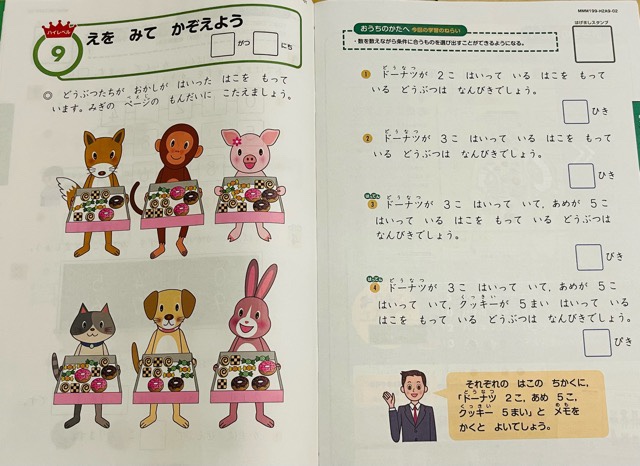 ハイレベル
9
えを みて かぞえよう
がつ
にち
◎ どうぶつたちが おかしが はいった はこを もって
います。みぎの ページの もんだいに こたえましょう。
MMM199-H2A9-02
おうちのかたへ 今回の学習のねらい
・数を数えながら条件に合うものを選び出すことができるようになる。
はげましスタンプ
1 ドーナツが 2こ はいって いる はこを もって
いる どうぶつは なんびきでしょう。
ひき
2 ドーナツが 3こ はいって いる はこを もって
いる どうぶつは なんびきでしょう。
ひき
はってん
3 ドーナツが 3こ はいって いて,あめが 5こ
はいって いる はこを もって いる どうぶつは
なんびきでしょう。
びき
はってん
4 ドーナツが 3こ はいって いて,あめが 5こ
はいって いて,クッキーが 5まい はいって いる
はこを もって いる どうぶつは なんびきでしょう。
びき
それぞれの はこの ちかくに,
「ドーナツ 2こ,あめ 5こ,
クッキー 5まい」と メモを
かくと よいでしょう。